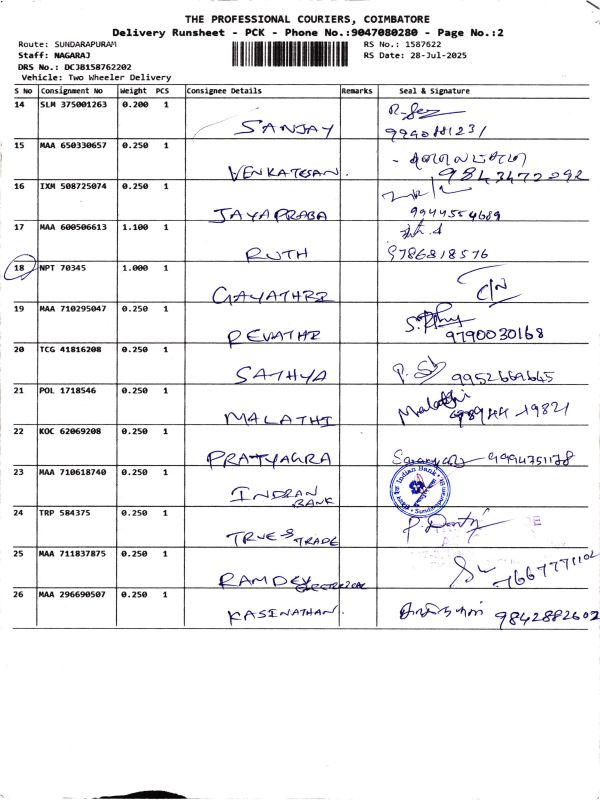 THE PROFESSIONAL COURIERS, COIMBATORE
Delivery Runsheet - PCK - Phone No.:9047080280 - Page No.:2
Route: SUNDARAPURAM RS No.: 1587622
Staff: NAGARAJ RS Date: 28-Jul-2025
DRS No.: DCJB158762202
Vehicle: Two Wheeler Delivery
S No Consignment No Weight PCS Consignee Details Remarks Seal & Signature
14 SLM 375001263 0.200 1
SANJAY 9940181231
15 MAA 650330657 0.250 1
VENKATESAN. 9843472092
16 IXM 508725074 0.250 1
JAYAPRABA 9944554689
17 MAA 600506613 1.100 1
RUTH 9786818576
18 NPT 70345 1.000 1
GAYATHRI
19 MAA 710295047 0.250 1
REVATHI 9790030168
20 TCG 41816208 0.250 1
SATHYA 9952669645
21 POL 1718546 0.250 1 Malathi
MALATHI
22 KOC 62069208 0.250 1
PRATYAGRA 9994751178
23 MAA 710618740 0.250 1 Indian Bank
INDIAN
BANK
24 TRP 584375 0.250 1
TRUE TRADE
25 MAA 711837875 0.250 1
RAMDEV 7667771102
26 MAA 296690507 0.250 1
KASINATHAN. 9842882602